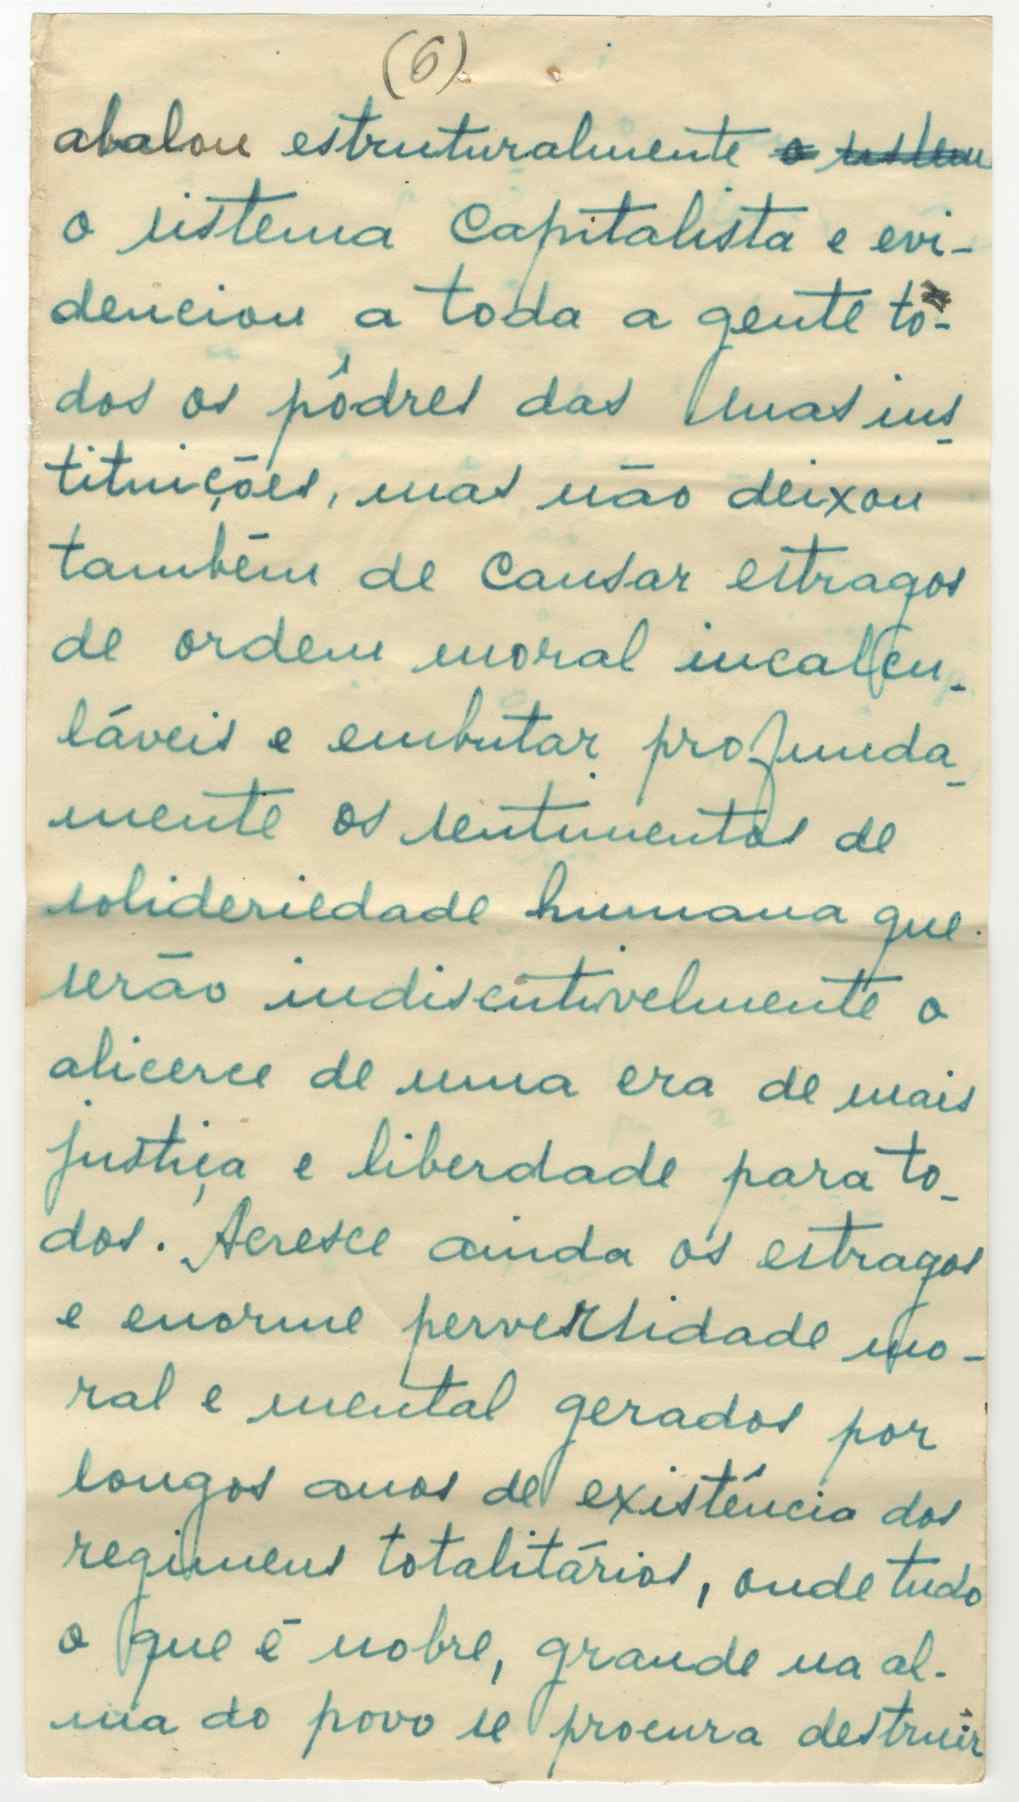 (6)
abalou estruturalmente o sistem
o sistema capitalista e evi-
denciou a toda a gente to-
dos os pôdres das suas ins-
tituições, mas não deixou
também de causar estragos
de ordem moral incalcu-
láveis e embutar profunda-
mente os sentimentos de
solideriedade humana que
serão indiscutivelmente o
alicerce de uma era de mais
justiça e liberdade para to-
dos. Acresce ainda os estragos
e enorme perversidade mo-
ral e mental gerados por
longos anos de existência dos
regimens totalitários, onde tudo
o que é nobre, grande na al-
ma do povo se procura destruir